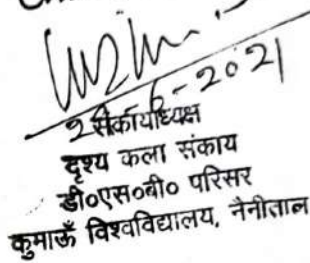 2021
संकायाध्यक्ष
दृश्य कला संकाय
डी०एस०बी० परिसर
कुमाऊँ विश्वविद्यालय, नैनीताल